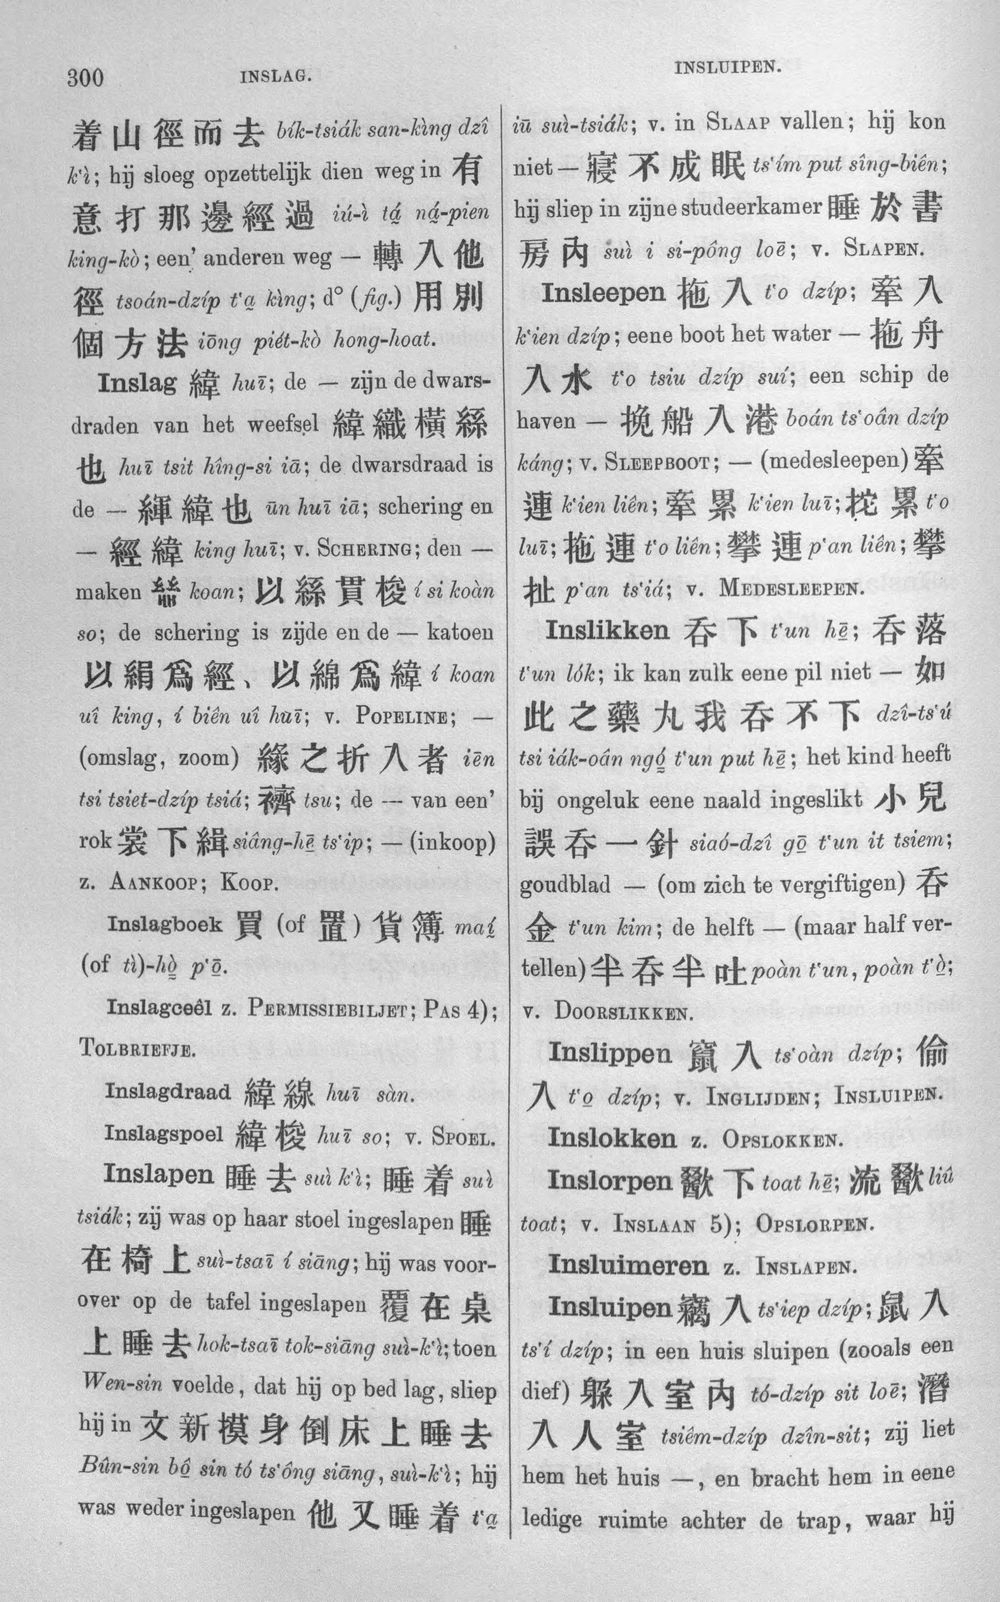 300
INSLAG.
INSLUIPEN.
着山徑而去 bı́k-tsiák san-kìng dzî
k‘ì; hij sloeg opzettelijk dien weg in 有
意打那邊經過 iú-ì tá̤ ná̤-pien
king-kò; een’ anderen weg — 轉入他
徑 tsoán-dzíp t‘a̤ kìng; d° (fig.) 用別
個方法 iōng piét-kò hong-hoat.
Inslag 緯 huī; de — zijn de dwars-
draden van het weefsel 緯織橫絲
也 huī tsit hîng-si iā; de dwarsdraad is
de — 緷緯也 ūn huī iā; schering en
— 經緯 king huī; v. SCHERING; den —
maken 𢇇 koan; 以絲貫梭 í si koàn
so; de schering is zijde en de — katoen
以絹爲經、以綿爲緯 í koan
uî king, í biên uî huī; v. POPELINE; —
(omslag, zoom) 緣之折入者 iēn
tsi tsiet-dzíp tsiá; 𧝓 tsu; de — van een’
rok 裳下緝 siâng-hē̤ ts‘ip; — (inkoop)
z. AANKOOP; KOOP.
Inslagboek 買 (of 置) 貨簿 maí̤
(of tì)-hò̤ p‘ō̤.
Inslagceêl z. PERMISSIEBILJET; PAS 4);
TOLBRIEFJE.
Inslagdraad 緯線 huī sàn.
Inslagspoel 緯梭 huī so; v. SPOEL.
Inslapen 睡去 suì k‘ì; 睡着 suì
tsiák; zij was op haar stoel ingeslapen 睡
在椅上 suì-tsaī í siāng; hij was voor-
over op de tafel ingeslapen 覆在桌
上睡去 hok-tsaī tok-siāng suì-k‘ì; toen
Wen-sin voelde, dat hij op bed lag, sliep
hij in 文新摸身倒床上睡去
Bûn-sin bô̤ sin tó ts‘ông siāng, suì-k‘ì; hij
was weder ingeslapen 他又睡着 t‘a̤
iū suì-tsiák; v. in SLAAP vallen; hij kon
niet — 寢不成眠 ts‘ím put sîng-biên;
hij sliep in zijne studeerkamer 睡於書
房內 suì i si-pông loē; v. SLAPEN.
Insleepen 拖入 t‘o dzíp; 牽入
k‘ien dzíp; eene boot het water — 拖舟
入水 t‘o tsiu dzíp suí; een schip de
haven — 挽船入港 boán ts‘oân dzíp
káng; v. SLEEPBOOT; — (medesleepen) 牽
連 k‘ien liên; 牽累 k‘ien luī; 挓累 t‘o
luī; 拖連 t‘o liên; 攀連 p‘an liên; 攀
扯 p‘an ts‘iá; v. MEDESLEEPEN.
Inslikken 吞下 t‘un hē̤; 吞落
t‘un lók; ik kan zulk eene pil niet — 如
此之藥丸我吞不下 dzî-ts‘ú
tsi iák-oân ngó̤ t‘un put hē̤; het kind heeft
bij ongeluk eene naald ingeslikt 小兒
誤吞一針 siaó-dzî gō̤ t‘un it tsiem;
goudblad — (om zich te vergiftigen) 吞
金 t‘un kim; de helft — (maar half ver-
tellen) 半吞半吐 poàn t‘un, poàn t‘ò̤;
v. DOORSLIKKEN.
Inslippen 竄入 ts‘oàn dzíp; 偷
入 t‘o̤ dzíp; v. INGLIJDEN; INSLUIPEN.
Inslokken z. OPSLOKKEN.
Inslorpen 歠下 toat hē̤; 流歠 liû
toat; v. INSLAAN 5); OPSLORPEN.
Insluimeren z. INSLAPEN.
Insluipen 竊入 ts‘iep dzíp; 鼠入
ts‘í dzíp; in een huis sluipen (zooals een
dief) 躲入室內 tó-dzíp sit loē; 潛
入人室 tsiêm-dzíp dzîn-sit; zij liet
hem het huis —, en bracht hem in eene
ledige ruimte achter de trap, waar hij